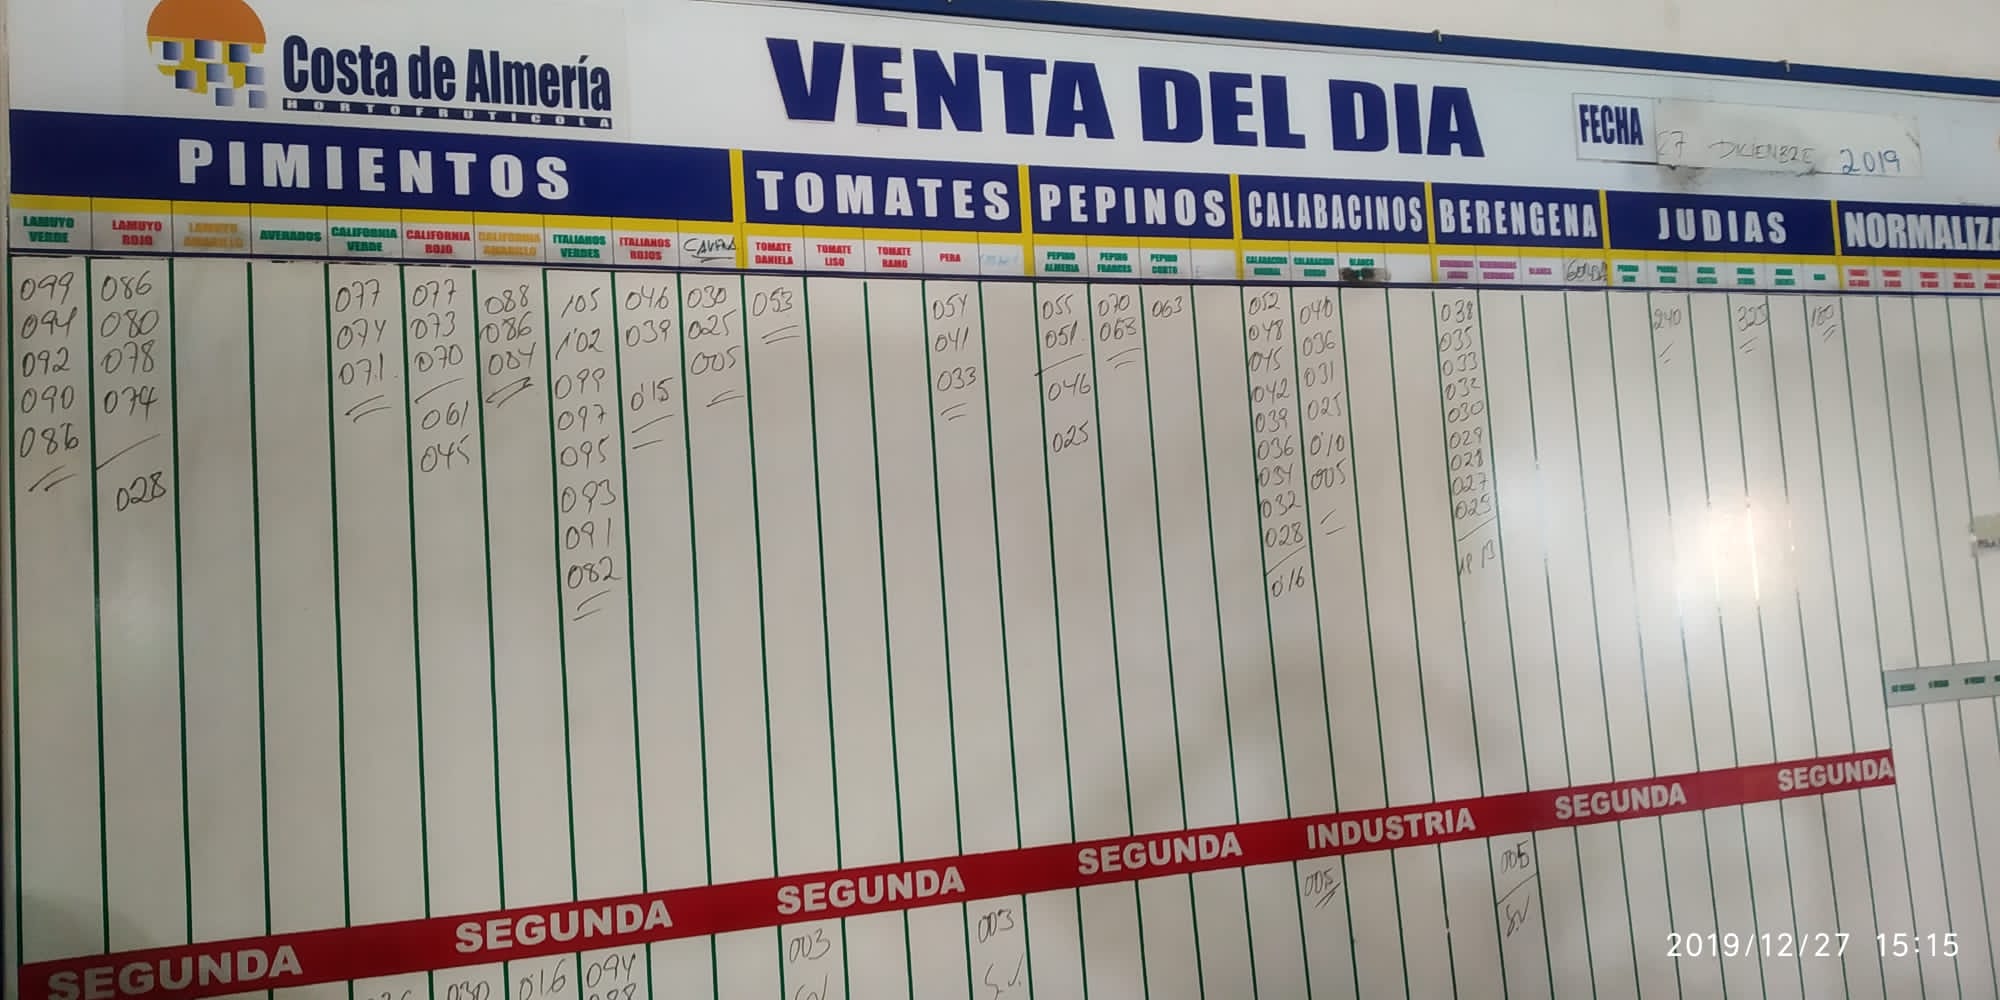 Costa de Almería
HORTOFRUTICOLA
VENTA DEL DIA
FECHA 27 DICIEMBRE 2019
PIMIENTOS TOMATES PEPINOS CALABACINOS BERENGENA JUDIAS NORMALIZA
LAMUYO VERDE
LAMUYO ROJO
LAMUYO AMARILLO
AVERADOS
CALIFORNIA VERDE
CALIFORNIA ROJO
CALIFORNIA AMARILLO
ITALIANOS VERDES
ITALIANOS ROJOS
TOMATE DANIELA
TOMATE LISO
TOMATE RAMO
PERA
PEPINO ALMERIA
PEPINO FRANCES
PEPINO CORTO
BLANCO
BLANCA
099 086 077 077 088 105 046 030 053 054 055 070 063 052 040 038 240 325 180
094 080 074 073 086 102 039 025 041 051 063 048 036 035
092 078 071 070 084 099 015 005 033 046 045 031 033
090 074 061 097 025 042 025 032
086 045 095 039 010 030
028 093 036 005 029
091 034 028
082 032 027
028 025
016
SEGUNDA SEGUNDA SEGUNDA SEGUNDA INDUSTRIA SEGUNDA SEGUNDA
030 016 094 003 003 005 005
S.V.
2019/12/27 15:15